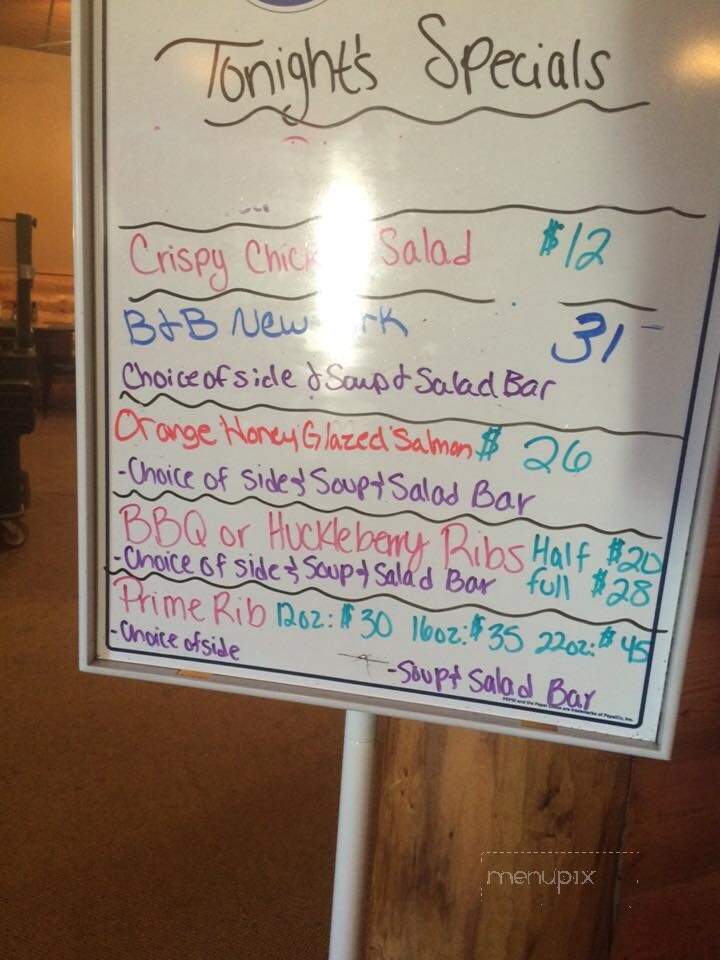 Tonight's Specials
Crispy Salad $12
B&B New 31
Choice of side & Soup & Salad Bar
Orange Honey Glazed Salmon $ 26
-Choice of side & Soup & Salad Bar
BBQ or Huckleberry Ribs Half $20
-Choice of side & Soup & Salad Bar full $28
Prime Rib 12oz: $30 16oz: $35 22oz: $45
-Choice of side
-Soup & Salad Bar
menupix